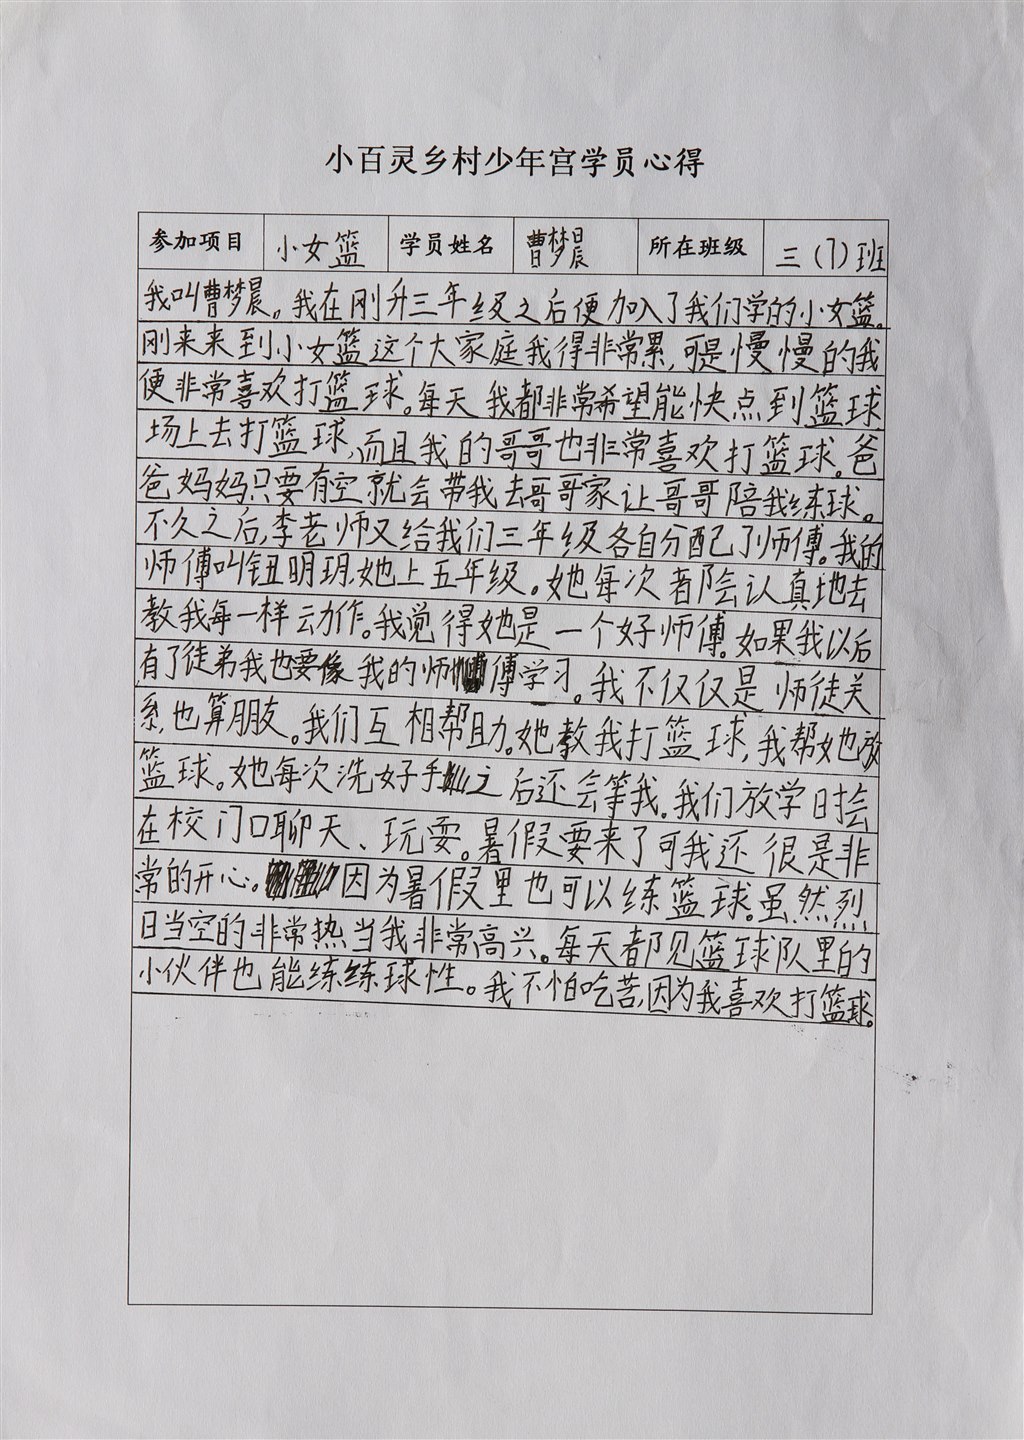 小百灵乡村少年宫学员心得
参加项目 小女篮 学员姓名 曹梦晨 所在班级 三(7)班
我叫曹梦晨。我在刚升三年级之后便加入了我们学的小女篮。
刚来来到小女篮这个大家庭我得非常累,可是慢慢的我
便非常喜欢打篮球。每天我都非常希望能快点到篮球
场上去打篮球,而且我的哥哥也非常喜欢打篮球。爸
爸妈妈只要有空就会带我去哥哥家让哥哥陪我练球。
不久之后,李老师又给我们三年级各自分配了师傅。我的
师傅叫钮明玥,她上五年级。她每次都会认真地去
教我每一样动作。我觉得她是一个好师傅。如果我以后
有了徒弟我也要像我的师傅学习。我不仅仅是师徒关
系,也算朋友。我们互相帮助。她教我打篮球,我帮她放
篮球。她每次洗好手之后还会等我。我们放学时会
在校门口聊天、玩耍。暑假要来了可我还很是非
常的开心。因为暑假里也可以练篮球。虽然烈
日当空的非常热当我非常高兴。每天都见篮球队里的
小伙伴也能练练球性。我不怕吃苦,因为我喜欢打篮球。